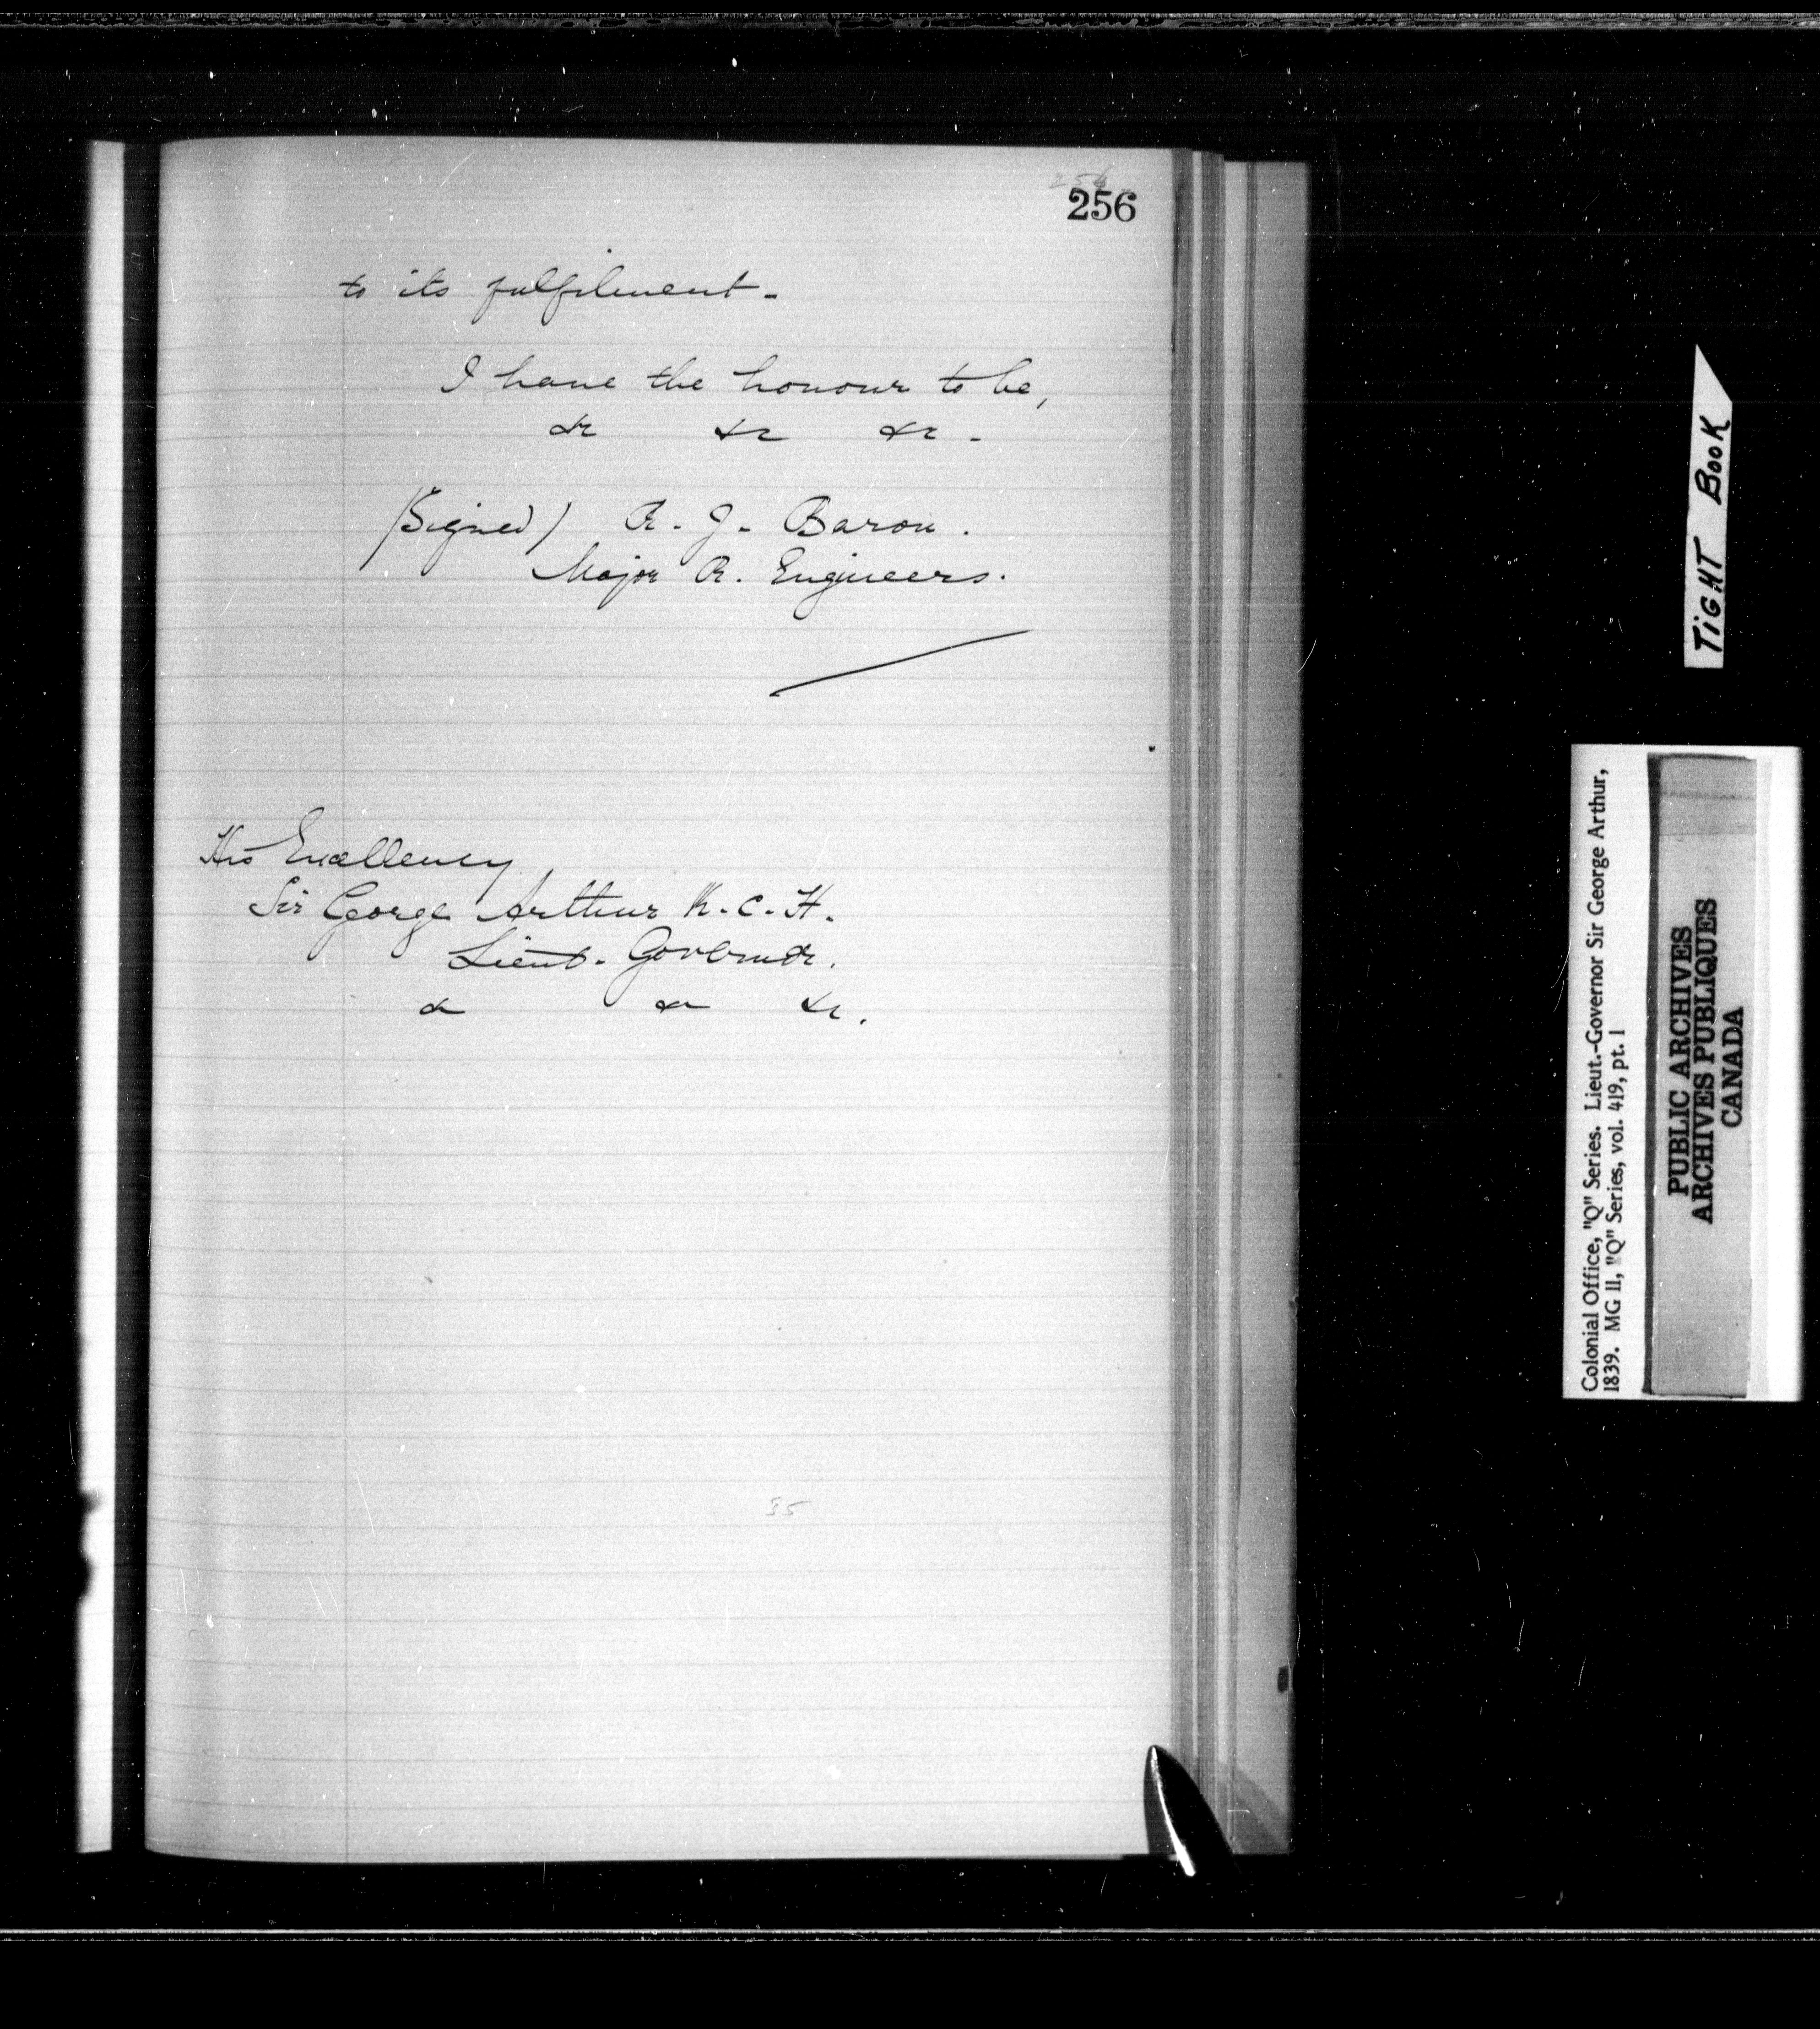 256
256
to its fulfilment -
I have the honour to be,
&c &c &c -
(Signed) R. J. Baron.
Major R. Engineers.
His Excellency
Sir George Arthur K.C.H.
Lieut. Governor.
&c &c &c.
35
TIGHT BOOK
Colonial Office, "Q" Series. Lieut.-Governor Sir George Arthur,
1839. MG 11, "Q" Series, vol. 419, pt. 1
PUBLIC ARCHIVES
ARCHIVES PUBLIQUES
CANADA